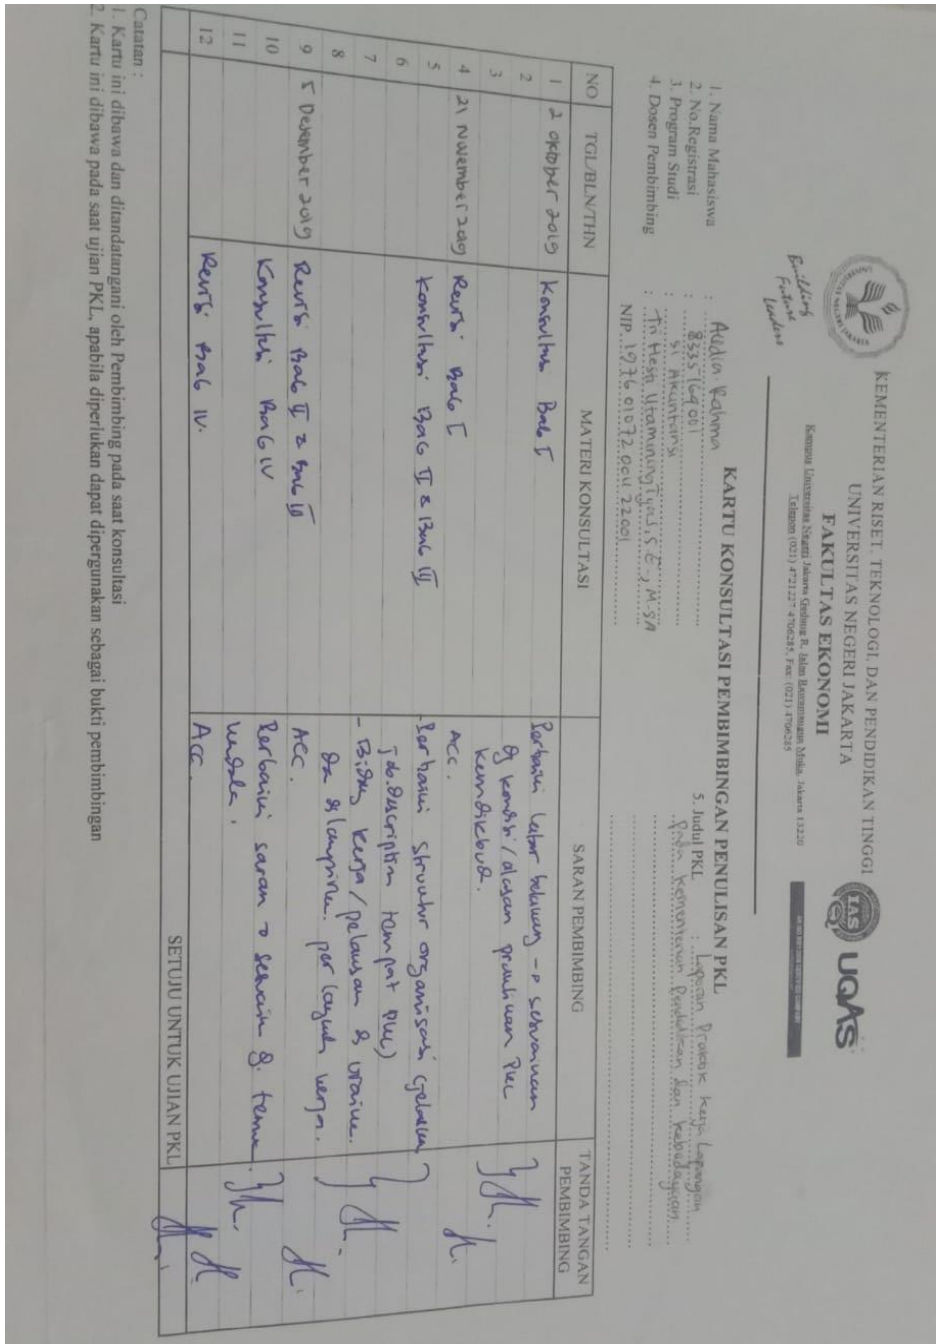 KEMENTERIAN RISET, TEKNOLOGI, DAN PENDIDIKAN TINGGI
UNIVERSITAS NEGERI JAKARTA
FAKULTAS EKONOMI
Kampus Universitas Negeri Jakarta Gedung R, Jalan Rawamangun Muka, Jakarta 13220
Telepon (021) 4721227 4706285, Fax: (021) 4706285
UNIVERSITAS NEGERI JAKARTA
Building
Future
Leaders
IAS
UQAS
KARTU KONSULTASI PEMBIMBINGAN PENULISAN PKL
1. Nama Mahasiswa : Audia Rahma
2. No.Registrasi : 8335164001
3. Program Studi : S1 Akuntansi
4. Dosen Pembimbing : Tri Hesti Utaminingtyas, S.E., M.SA
NIP. 197601072004 22001
5. Judul PKL : Laporan Praktik Kerja Lapangan
Pada Kementerian Pendidikan dan Kebudayaan
NO TGL/BLN/THN MATERI KONSULTASI SARAN PEMBIMBING TANDA TANGAN PEMBIMBING
1 2 oktober 2019 Konsultasi Bab I Perbaiki latar belakang → sesuaikan
2 dg kondisi/alasan pemilihan PKL
3 Kemdikbud.
4 21 November 2019 Revisi Bab I ACC.
5 Konsultasi Bab II & Bab III - Perbaiki struktur organisasi (jelaskan
6 job.description tempat PKL)
7 - Bidang Kerja/pelaksaan & uraian.
8 per langkah kerja.
9 5 Desember 2019 Revisi Bab II & Bab III ACC.
10 Konsultasi Bab IV Perbaiki saran → sesuaikan dg. temuan
11 kendala.
12 Revisi Bab IV. ACC.
SETUJU UNTUK UJIAN PKL
Catatan :
1. Kartu ini dibawa dan ditandatangani oleh Pembimbing pada saat konsultasi
2. Kartu ini dibawa pada saat ujian PKL, apabila diperlukan dapat dipergunakan sebagai bukti pembimbingan